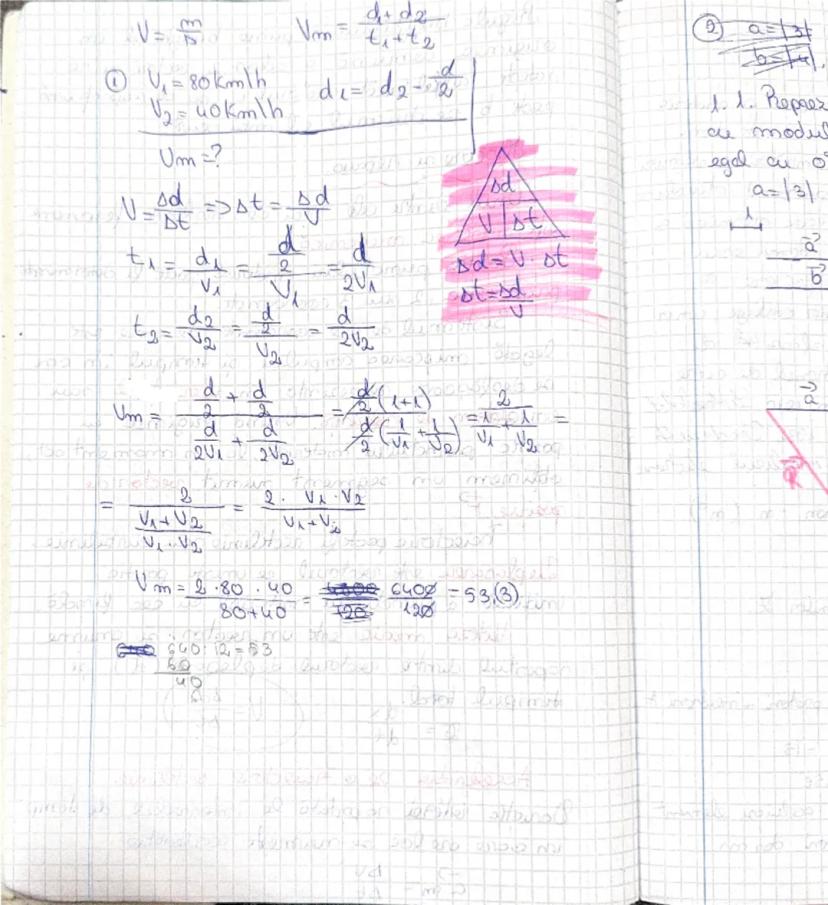 V = m/s
Vm = (d1 + d2)/(t1 + t2)
① V1 = 80 km/h
d1 = d2 = d/2
V2 = 40 km/h
Vm = ?
V = Δd/Δt => Δt = Δd/V
Δd
V | Δt
Δd = V · Δt
Δt = Δd/V
t1 = d1/V1 = (d/2)/V1 = d/2V1
t2 = d2/V2 = (d/2)/V2 = d/2V2
Vm = (d/2 + d/2)/(d/2V1 + d/2V2) = d/2 (1+1)/d/2 (1/V1 + 1/V2) = 2/(1/V1 + 1/V2) =
= 2/((V1+V2)/(V1·V2)) = (2 · V1 · V2)/(V1+V2)
Vm = (2 · 80 · 40)/(80+40) = 6400/120 = 53,(3)
640:12=53
60
40
② a = |3|
b = |4|
1. 1. Reprez
cu modul
egal cu 0
a = |3|
1
a⃗
b⃗
a⃗